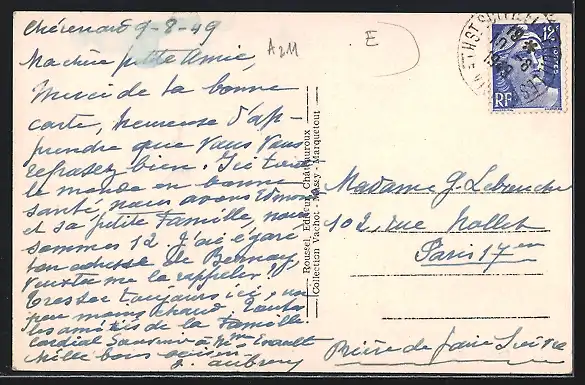 Chérenard 9-8-49
Ma chère petite Amie,
Merci de ta bonne
carte, heureuse d'ap-
prendre que vous vous
reposez bien. Ici tout
le monde en bonne
santé, nous avons Edmond
et sa petite Famille, nous
sommes 12. J'ai égaré
ton adresse de Bernay
veux tu me la rappeler?
toujours ici, un
peu moins chaud. Toutes
les amitiés de la Famille.
Cordial Souvenir à Mme
Mille bons baisers
Aubrey
A211
E
Roussel, Editeur, Châteauroux
Collection Vachot-Massy - Marquetout
12F
POSTES
RF
Madame G. Lebranche
102, rue Nollet
Paris 17em
Prière de faire Suivre